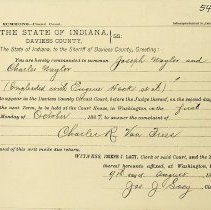 54
SUMMONS—Circuit Court.
THE STATE OF INDIANA,
DAVIESS COUNTY, SS:
The State of Indiana, to the Sheriff of Daviess County, Greeting:
You are hereby commanded to summon Joseph Naylor and
Charles Naylor
(Impleaded with Eugene Hack et al)
to appear in the Daviess Circuit Court, before the Judge thereof, on the second day
next Term, to be held at the Court House, in Washington, on the first
Monday of October 1887, to answer the complaint of
Charles R. Van Trees
of this writ make due return.
WITNESS, JOSEPH J. LACY, Clerk of said Court, and the
thereof hereunto affixed, at Washington,
9th day of August
Jos J Lacy